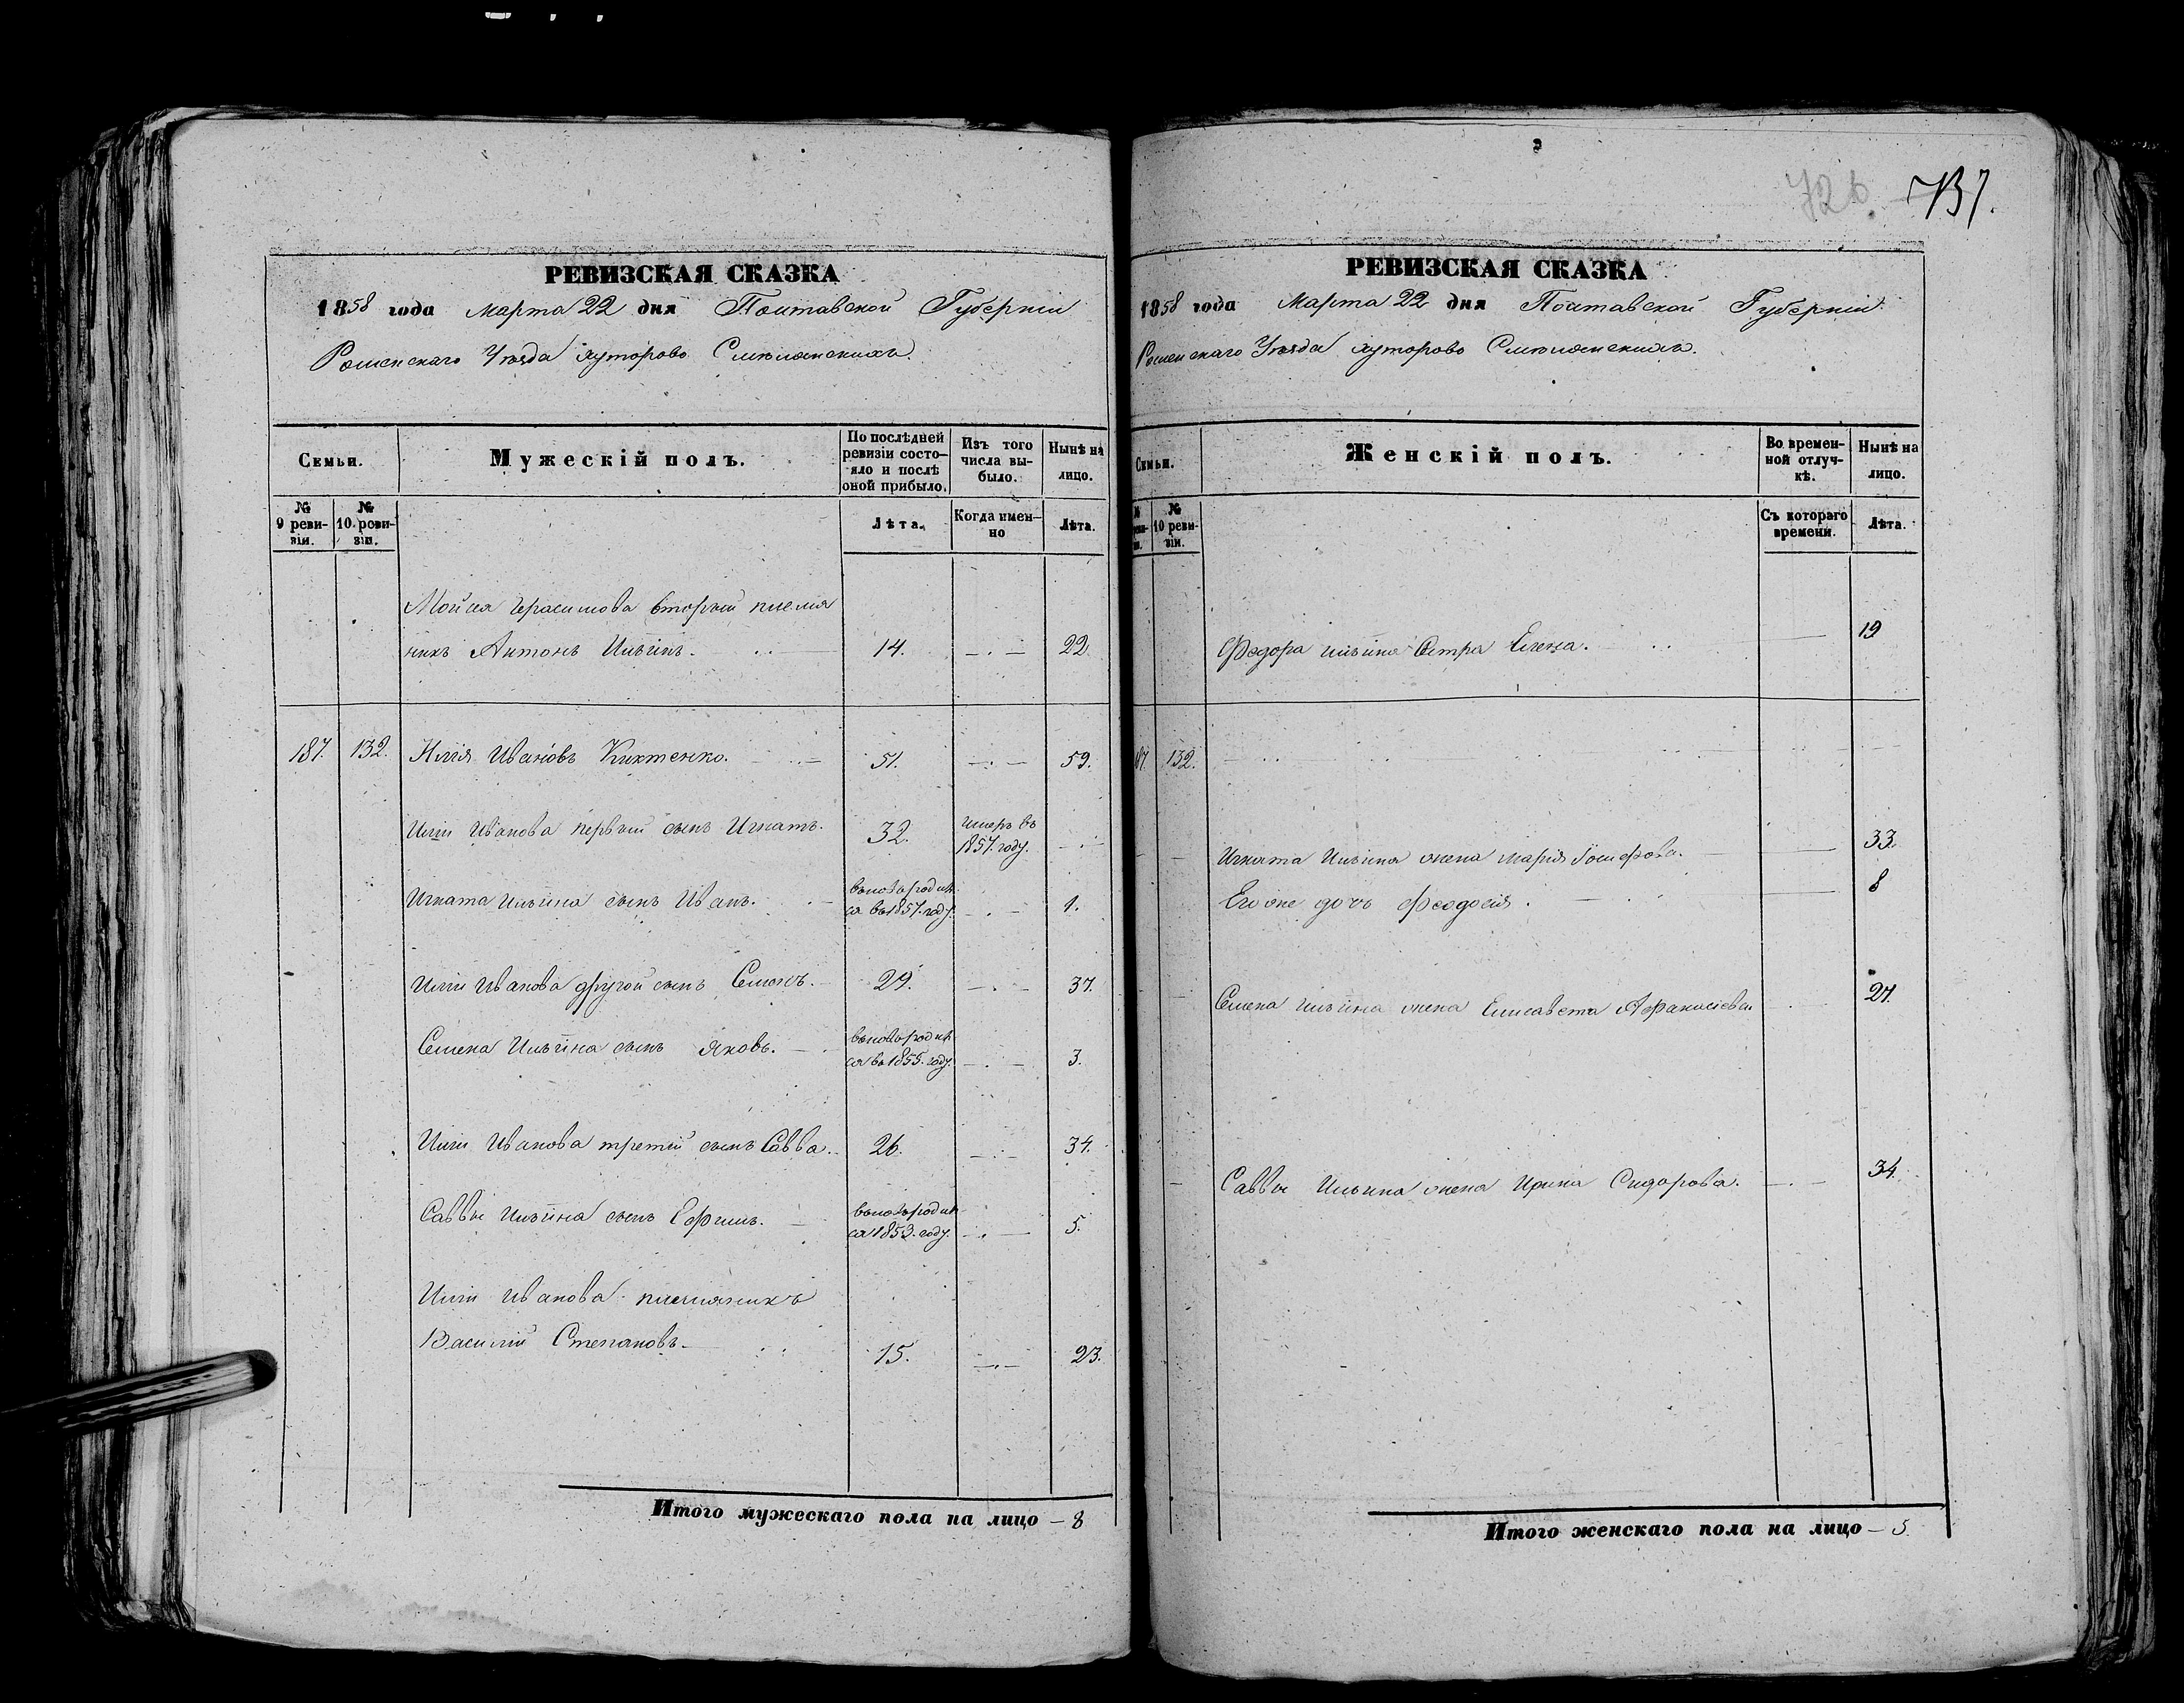 726. 737.
РЕВИЗСКАЯ СКАЗКА
1858 года Марта 22 дня Полтавской Губерніи
Роменскаго Уѣзда хуторово Смѣлянскихъ.
Семьи.
Мужескій полъ.
По послѣдней ревизіи состо-
яло и послѣ
оной прибыло.
Изъ того
числа вы-
было.
Нынѣ на
лицо.
№
9 реви-
зіи.
№
10. реви-
зіи.
Лѣта.
Когда имен-
но
Лѣта.
Мойсея Герасимова вторый племя
никъ Антонъ Ильинъ. 14. 22
187. 132. Илія Ивановъ Кихтенко. 51. 59.
Иліи Иванова первый сынъ Игнатъ. 32. умеръ въ
1857. году.
Игната Ильина сынъ Иванъ. вновьродил
ся въ 1857. году. 1.
Иліи Иванова другой сынъ Семенъ. 29. 37.
Семена Ильина сынъ Яковъ. вновьродил
ся въ 1855. году. 3.
Иліи Иванова третій сынъ Савва. 26. 34.
Саввы Ильина сынъ Ефимъ. вновьродил
ся 1853. году. 5.
Иліи Иванова племянникъ
Василій Степановъ. 15. 23.
Итого мужескаго пола на лицо – 8
РЕВИЗСКАЯ СКАЗКА
1858 года Марта 22 дня Полтавской Губерніи
Роменскаго Уѣзда хуторово Смѣлянскихъ.
Семьи.
Женскій полъ.
Во времен-
ной отлуч-
кѣ.
Нынѣ на
лицо.
№
10 реви-
зіи.
Съ котораго
времени.
Лѣта.
Федора Ильина Сестра Елена. 19
187. 132.
Игната Ильина жена Марія Іосифова. 33.
Его же дочь Феодосія. 8
Семена Ильина жена Елисавета Афанасіева 27.
Саввы Ильина жена Ирина Сидорова. 34.
Итого женскаго пола на лицо – 5.